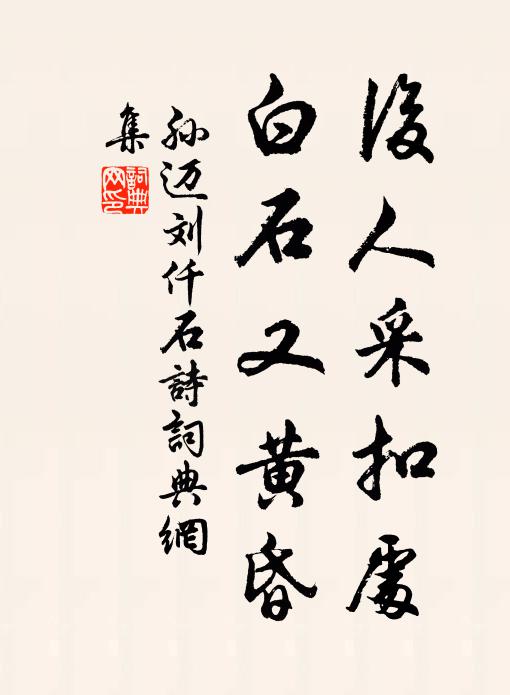 後人采扣處
白石又黄昏
孙迈刘仟石詩詞典網
集
詞典
网印